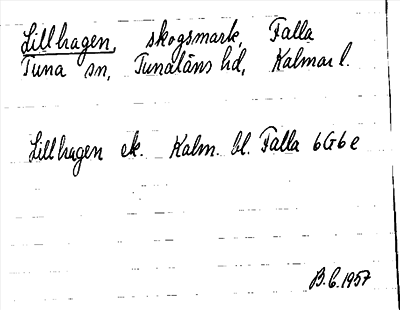 Lillhagen, skogsmark, Falla
Tuna sn, Tunaläns hd, Kalmar l.
Lillhagen ek. Kalm. bl. Falla 6G6e
B.C. 1957